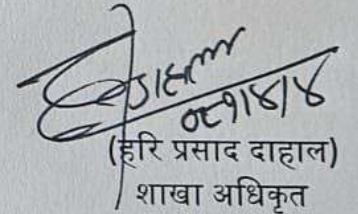 ०८१/४/४
(हरि प्रसाद दाहाल)
शाखा अधिकृत